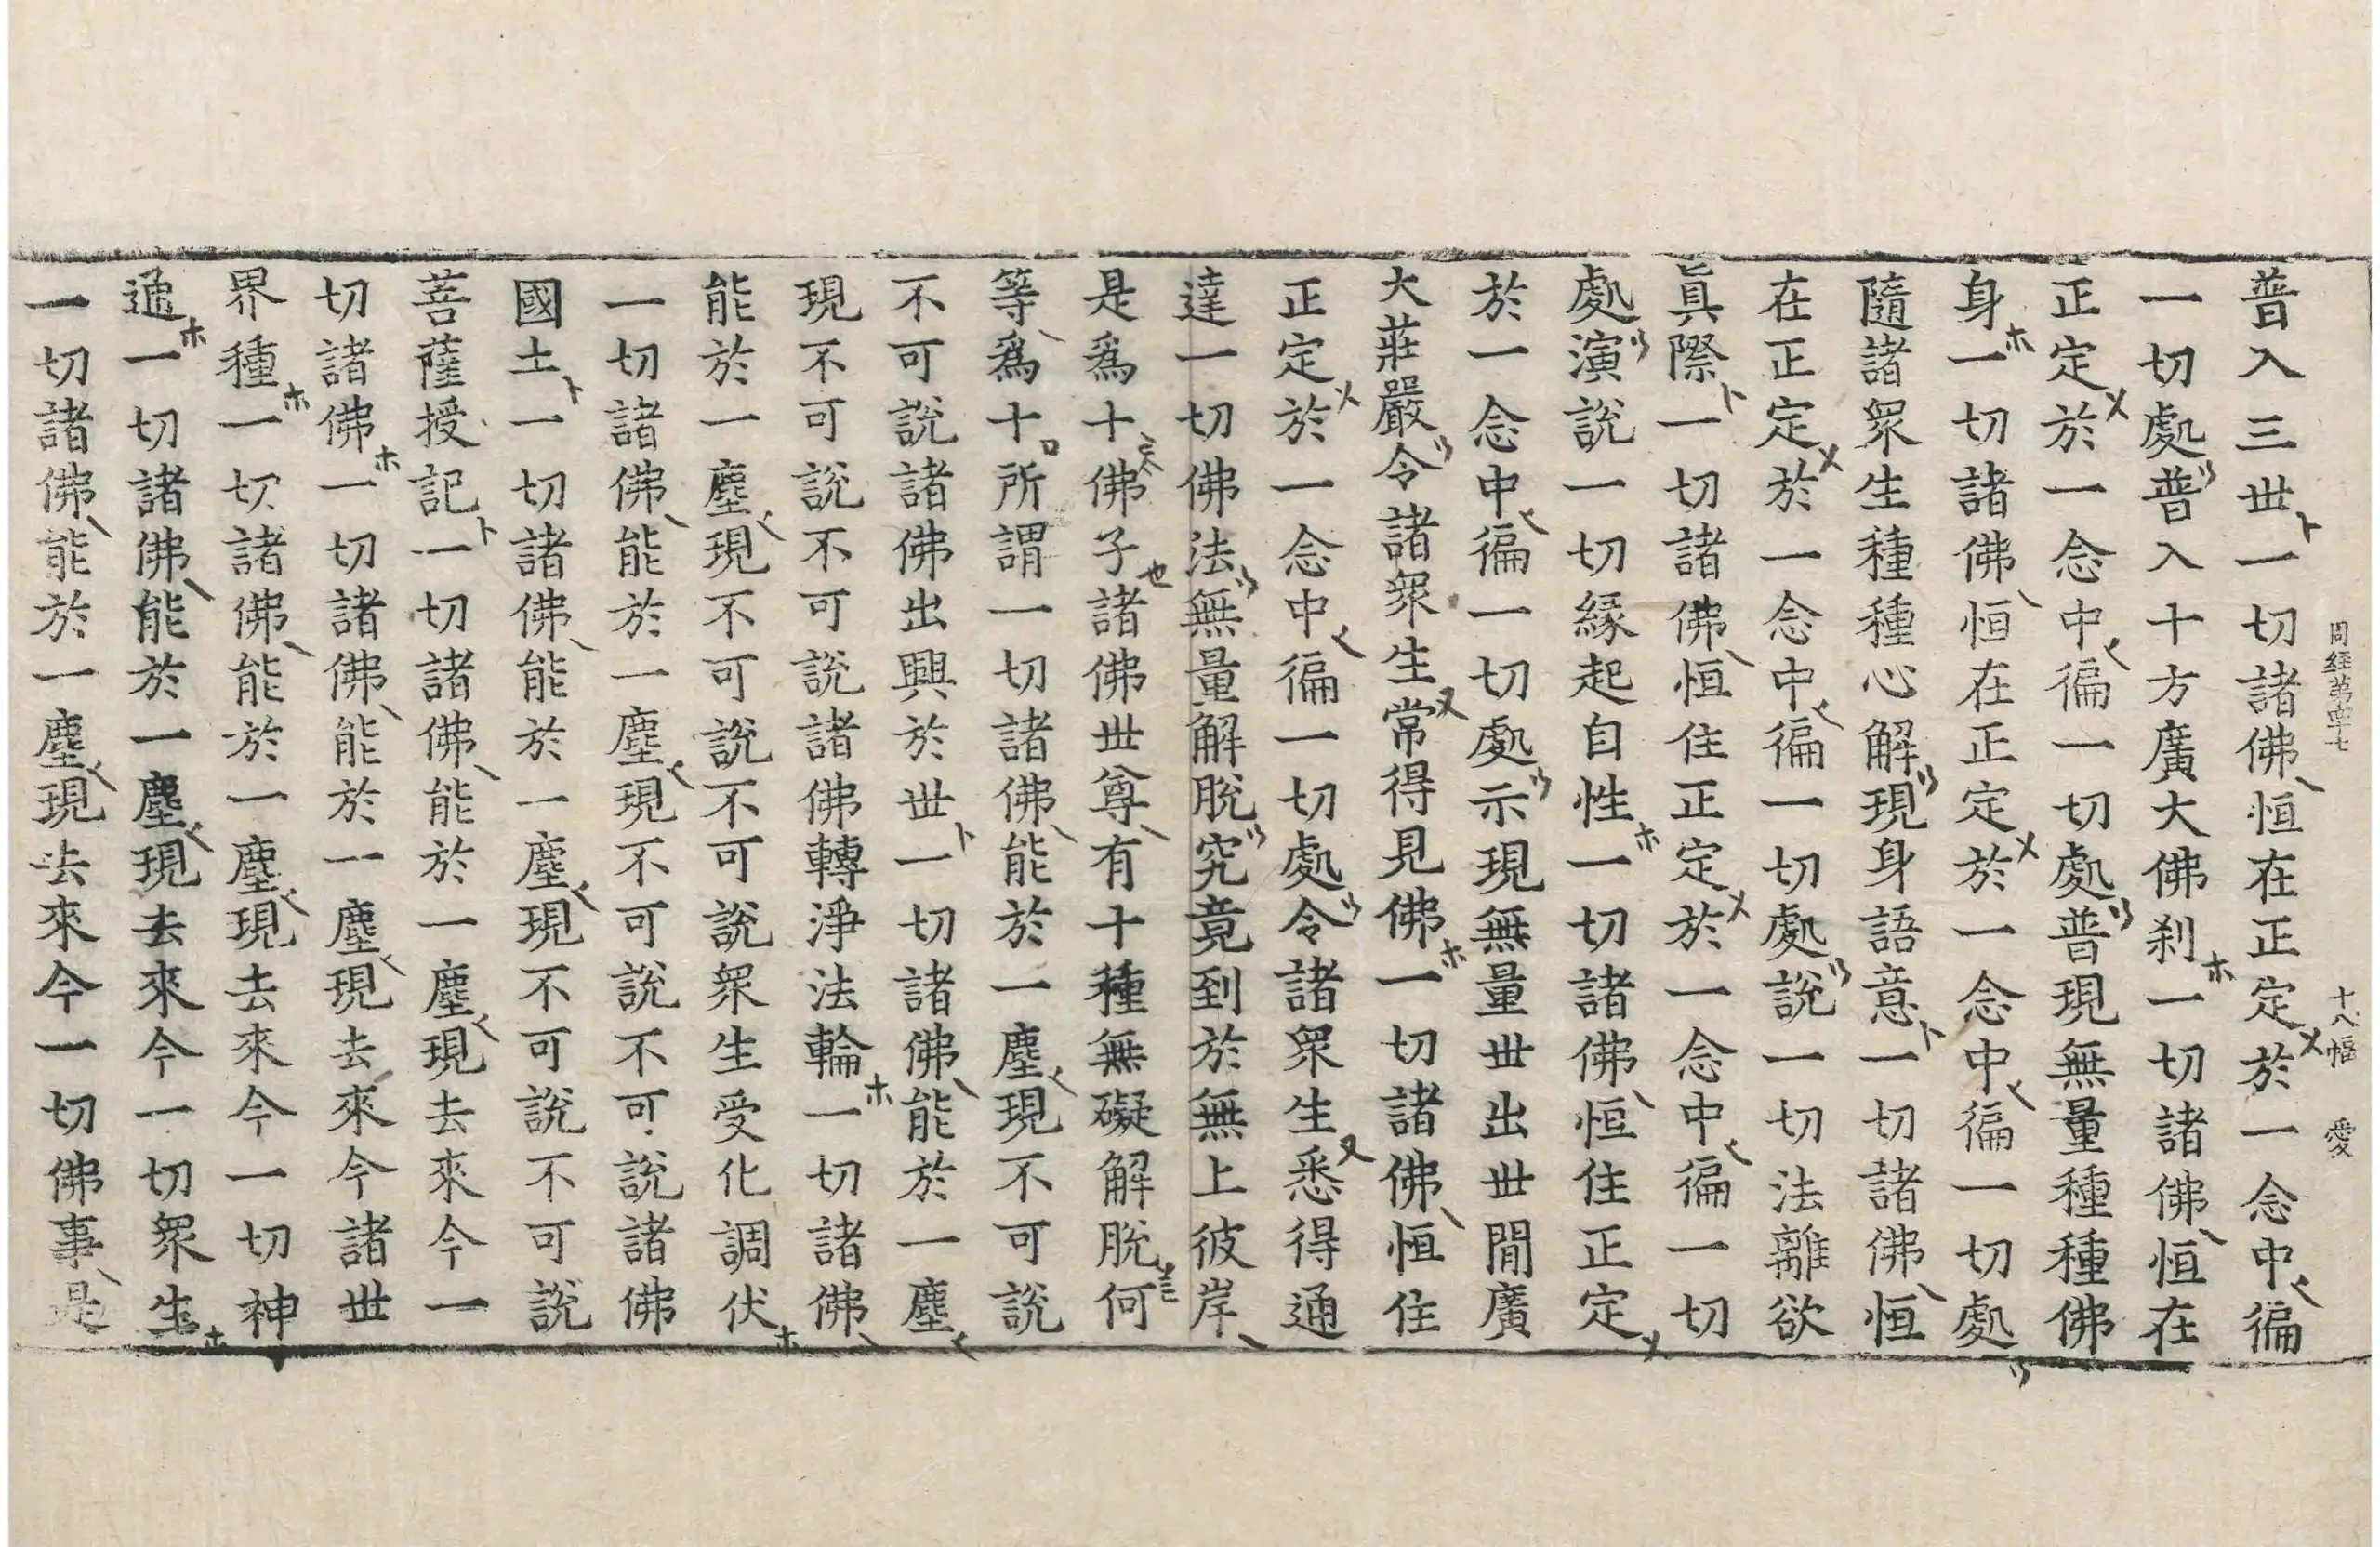 周經第四十七 十八幅 愛
普入三世一切諸佛恒在正定於一念中徧
一切處普入十方廣大佛刹一切諸佛恒在
正定於一念中徧一切處普現無量種種佛
身一切諸佛恒在正定於一念中徧一切處
隨諸衆生種種心解現身語意一切諸佛恒
在正定於一念中徧一切處說一切法離欲
眞際一切諸佛恒住正定於一念中徧一切
處演說一切縁起自性一切諸佛恒住正定
於一念中徧一切處示現無量世出世閒廣
大莊嚴令諸衆生常得見佛一切諸佛恒住
正定於一念中徧一切處令諸衆生悉得通
達一切佛法無量解脫究竟到於無上彼岸
是爲十佛子諸佛世尊有十種無礙解脫何
等爲十所謂一切諸佛能於一塵現不可說
不可說諸佛出興於世一切諸佛能於一塵
現不可說不可說諸佛轉淨法輪一切諸佛
能於一塵現不可說不可說衆生受化調伏
一切諸佛能於一塵現不可說不可說諸佛
國土一切諸佛能於一塵現不可說不可說
菩薩授記一切諸佛能於一塵現去來今一
切諸佛一切諸佛能於一塵現去來今諸世
界種一切諸佛能於一塵現去來今一切神
通一切諸佛能於一塵現去來今一切衆生
一切諸佛能於一塵現去來今一切佛事是